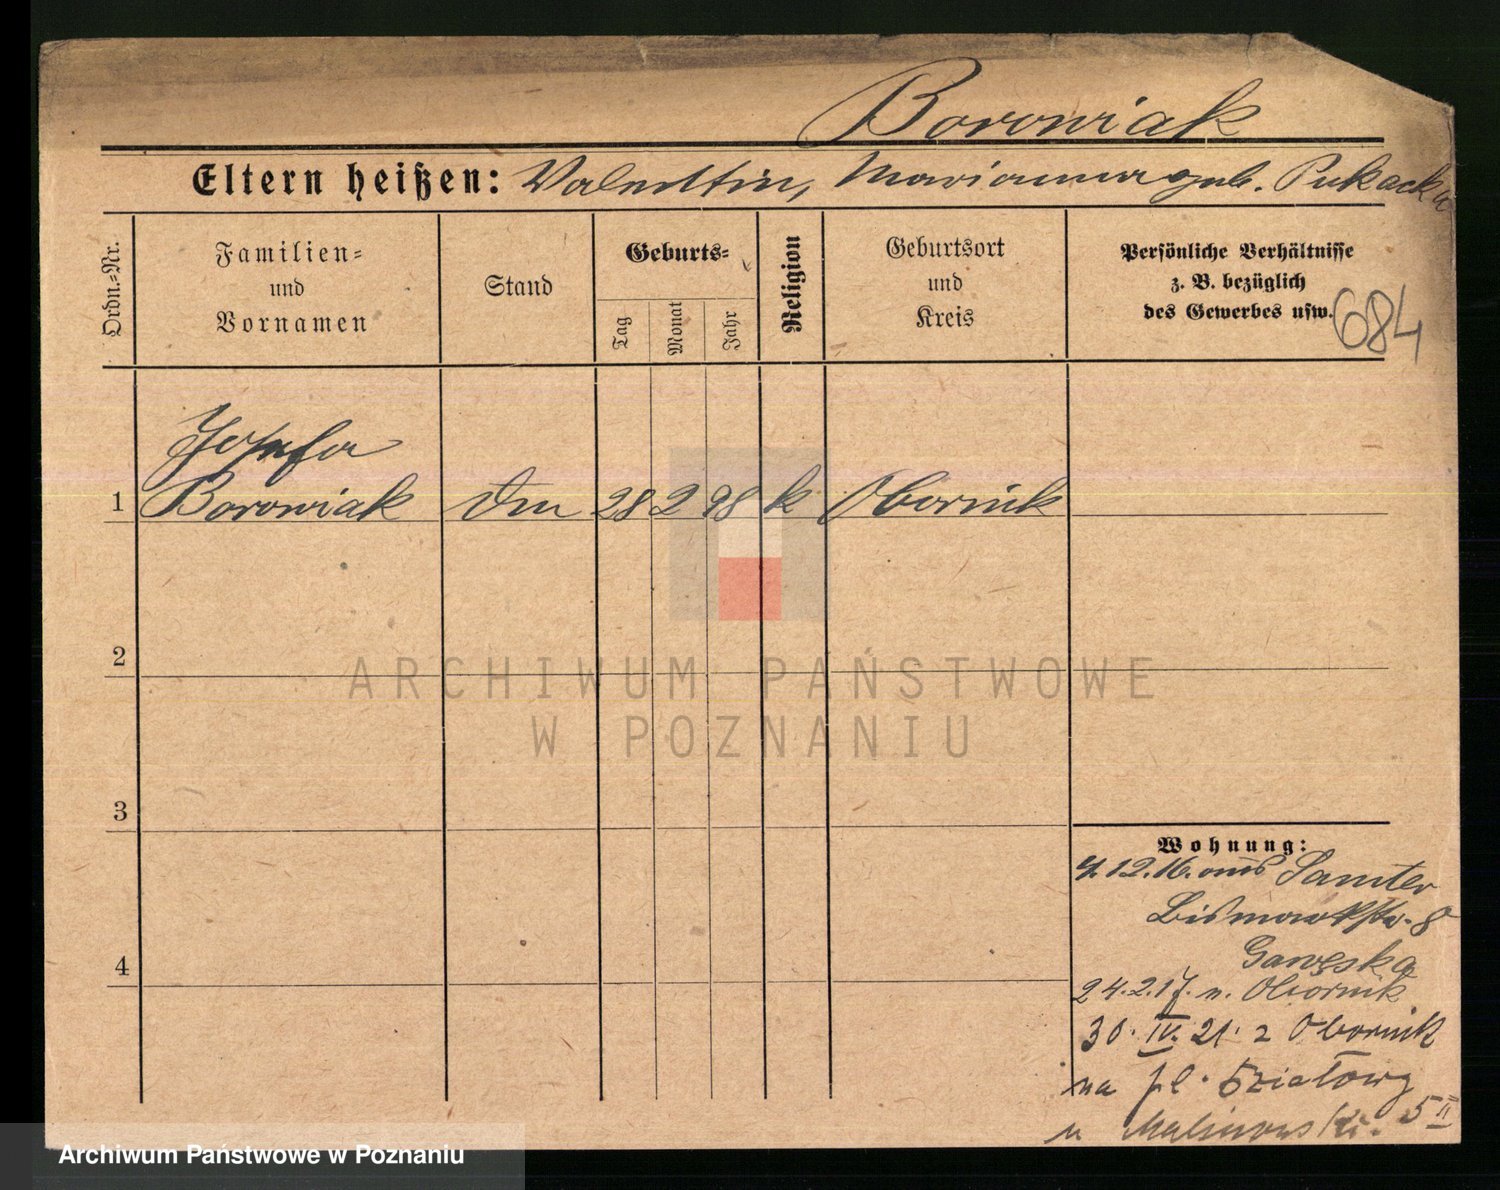 Borowiak
Eltern heißen: Valentin, Marianna geb. Pukacka
Ordn.-Nr.
Familien-
und
Vornamen
Stand
Geburts-
Tag
Monat
Jahr
Religion
Geburtsort
und
Kreis
Persönliche Verhältnisse
z. B. bezüglich
des Gewerbes usw.
684
Josefa
1 Borowiak 28 2 98 k Obornik
2
3
4
Wohnung:
4.12.16. aus Samter
Bismarckstr. 8
Gawęska
24.2.17. n. Obornik
30. IV. 21. z Obornik
na pl. Działowy
u Malinowski. 5 II
ARCHIWUM PAŃSTWOWE
W POZNANIU
Archiwum Państwowe w Poznaniu